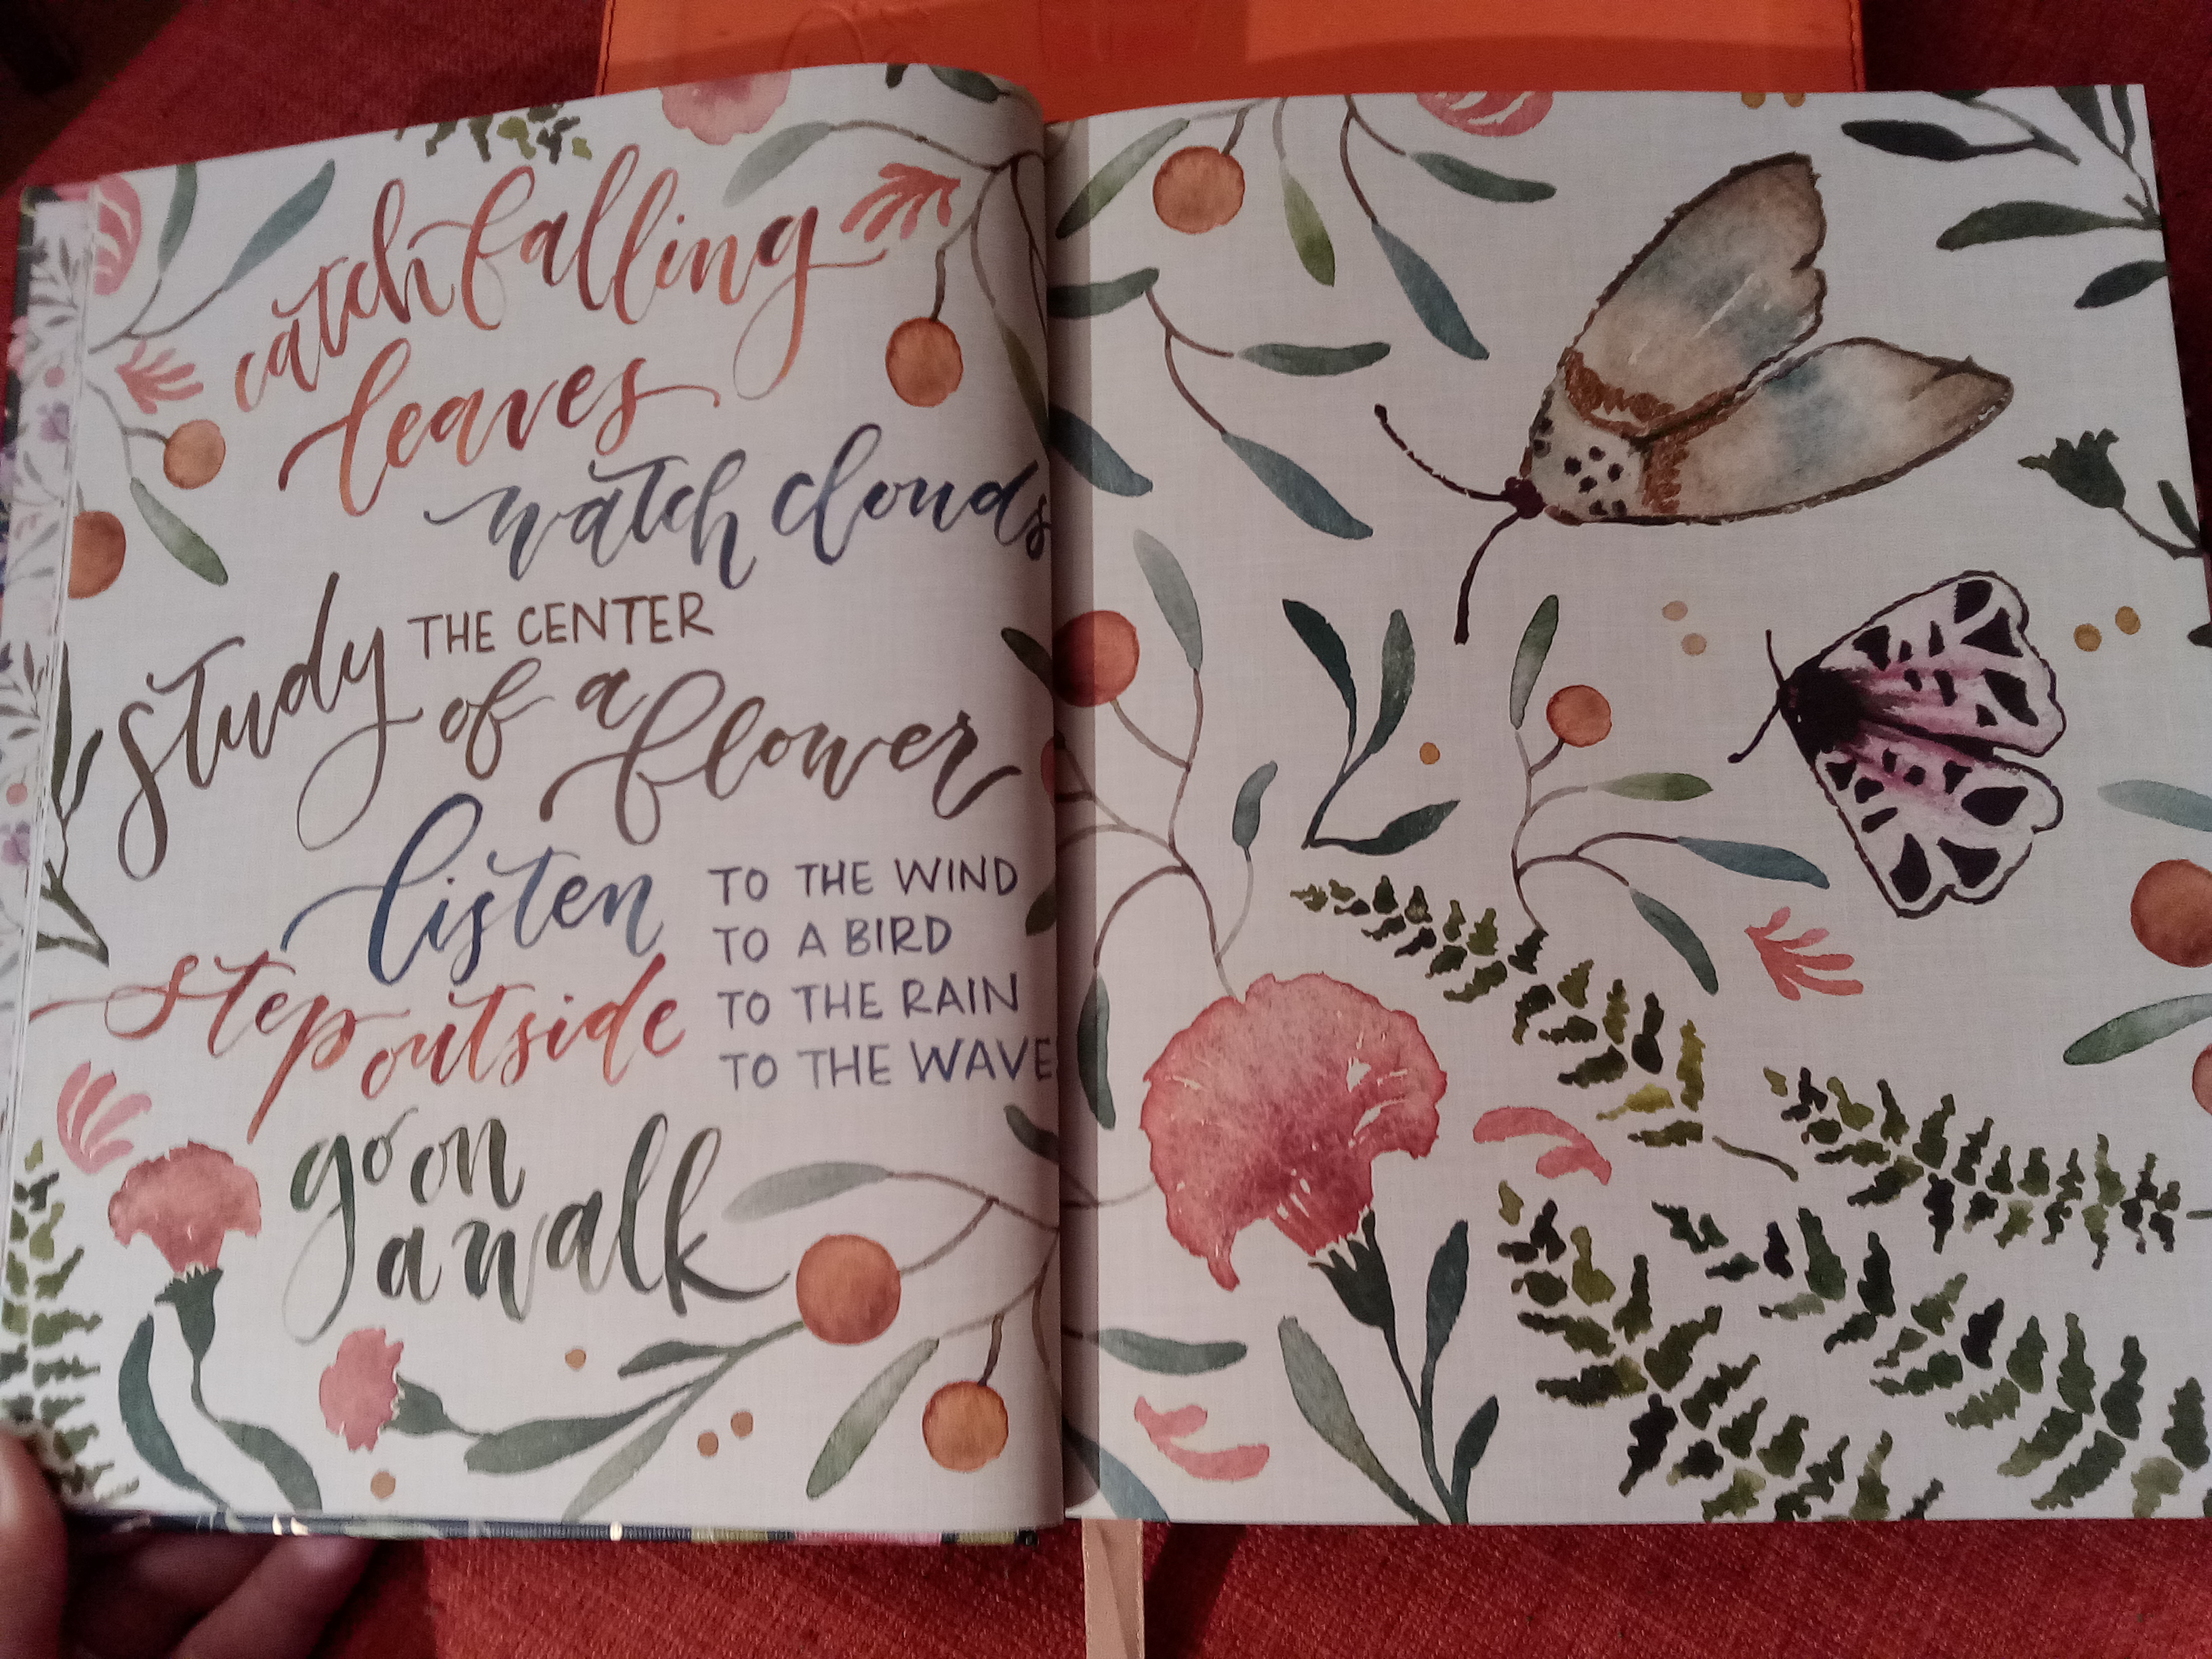 catch falling
leaves
watch clouds
study THE CENTER
of a flower
listen TO THE WIND
TO A BIRD
TO THE RAIN
TO THE WAVE
step outside
go on
a walk